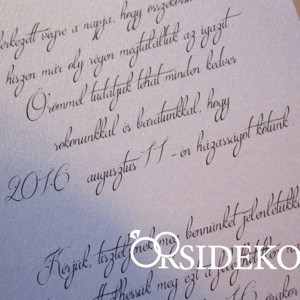 érkezett végre a napja, hogy összekössük
hiszen már oly régen megtaláltuk az igazit
Örömmel tudatjuk tehát minden kedves
rokonunkkal és barátunkkal, hogy
2016 augusztus 11-én házasságot kötünk
Kérjük, tiszteljenek meg bennünket jelenlétükkel
meg ezt a
ORSIDEKO